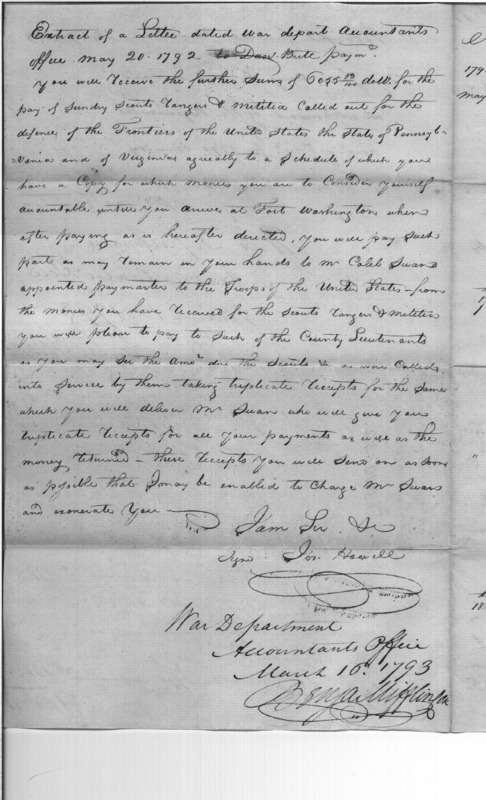 Extract of a Letter dated War depart Accountants
office May 20. 1792 to Dav. Britt paymr.
You will receive the further Sums of 6055 dolls. for the
pay of Sundry Scouts rangers & Melitia Called out for the
defence of the Frontiers of the United States the State of Pennsyl-
-vania and of Virginia agreeably to a Schedule of which you
have a Copy for which monies you are to Consider yourself
accountable untill you arrive at Fort Washington when
after paying as is hereafter directed, you will pay Such
part as may remain in your hands to Mr Caleb Swan
appointed paymaster to the Troops of the United States – from
the monies you have received for the Scouts rangers & Melitia
you will please to pay to Such of the County Lieutenants
as you may See the Amot. due the Scouts & as were Called
into Service by them taking triplicate receipts for the Same
which you will deliver Mr Swan who will give you
triplicate receipts for all your payments as well as the
money returned – these receipts you will Send on as Soon
as possible that I may be enabled to Charge Mr Swan
and exonerate you
I am Sir &c
Jos. Howell
War Department
Accountants Office
March 16. 1793
Benja Mifflin
179
may
18